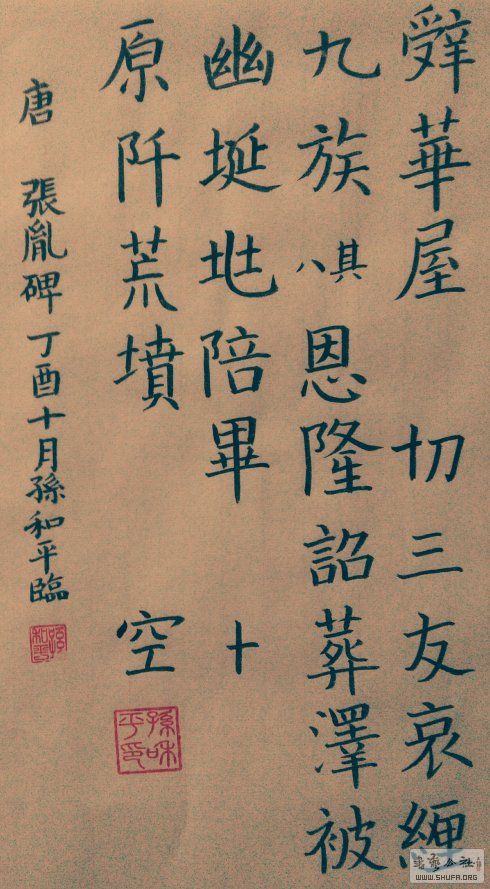 辤華屋 切三友哀緾
九族 八其恩隆詔葬澤被
幽埏地陪畢 十
原阡荒墳 空
孫和平印
唐 張胤碑丁酉十月孫和平臨
孫和平
书艺公社
WWW.SHUFA.ORG